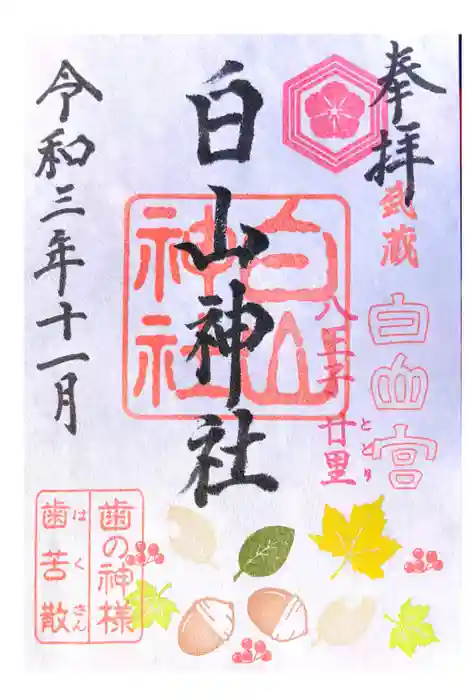 奉拝
武蔵
白山宮
八王子 廿里
とどり
白山神社
白山
神社
令和三年十一月
歯の神様
歯苦散
はくさん